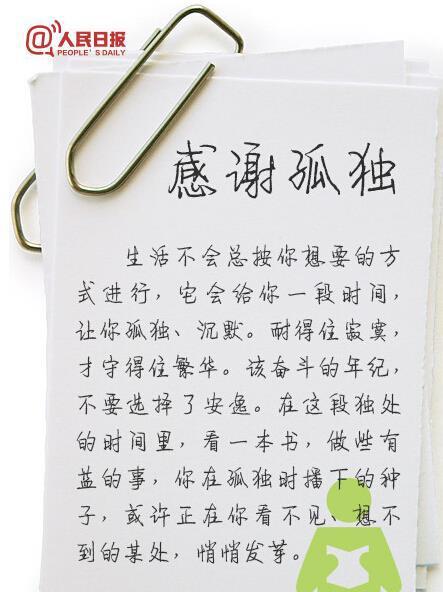 @人民日报
PEOPLE'S DAILY
感谢孤独
生活不会总按你想要的方
式进行，它会给你一段时间，
让你孤独、沉默。耐得住寂寞，
才守得住繁华。该奋斗的年纪，
不要选择了安逸。在这段独处
的时间里，看一本书，做些有
益的事，你在孤独时播下的种
子，或许正在你看不见、想不
到的某处，悄悄发芽。